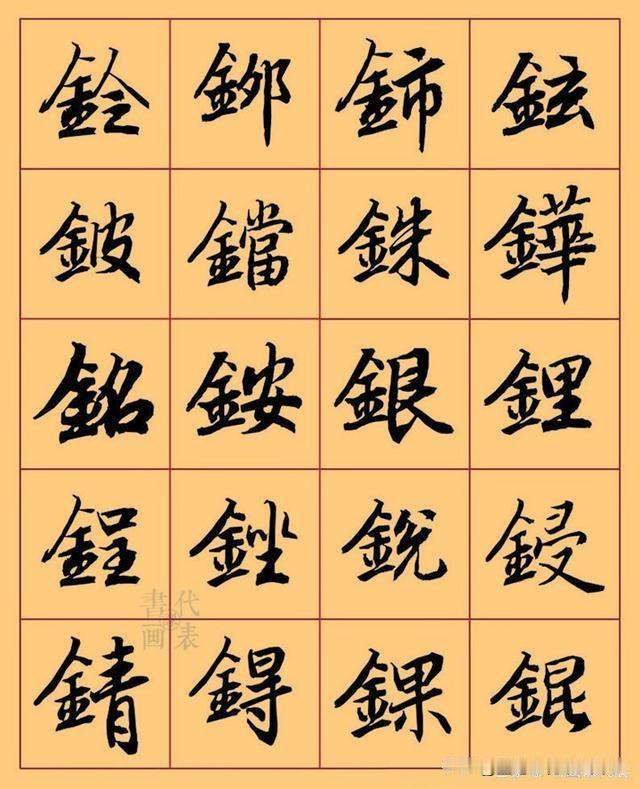 鈴鉚鈰鉉
鈹鐺銖鏵
銘銨銀鋰
鋥銼銳鋟
錆鍀錁錕
書代
画表